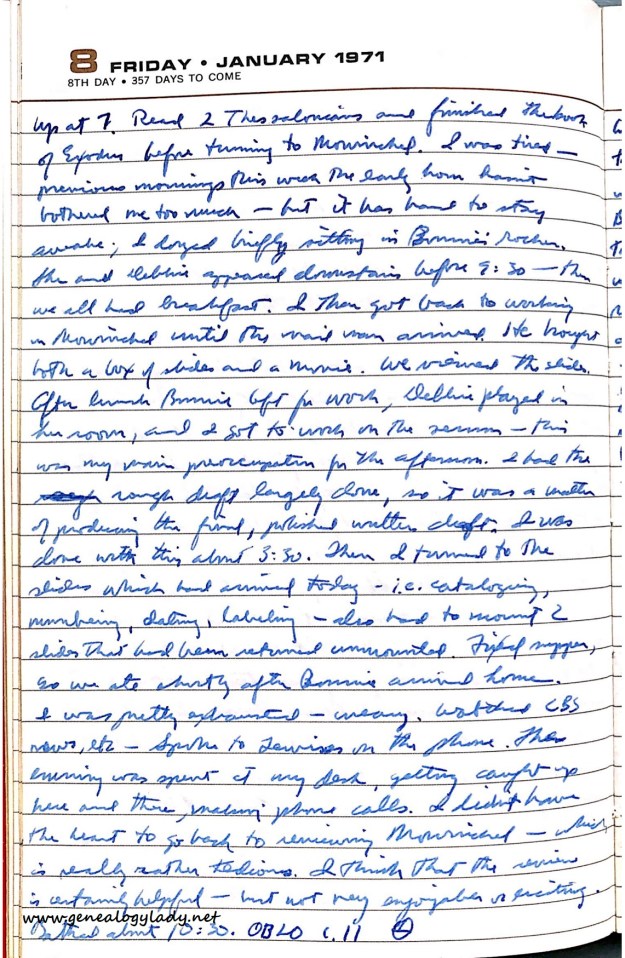 8 FRIDAY • JANUARY 1971
8TH DAY • 357 DAYS TO COME
Up at 7. Read 2 Thessalonians and finished the book
of Exodus before turning to Mowinckel. I was tired —
previous mornings this week the early hour hasn't
bothered me too much — but it was hard to stay
awake; I dozed briefly sitting in Bonnie's rocker.
She and Debbie appeared downstairs before 9:30 — then
we all had breakfast. I then got back to working
in Mowinckel until the mail man arrived. He brought
both a box of slides and a movie. We viewed the slides.
After lunch Bonnie left for work, Debbie played in
her room, and I got to work on the sermon — this
was my main preoccupation for the afternoon. I had the
rough draft largely done, so it was a matter
of producing the final, polished written draft. I was
done with this about 3:30. Then I turned to the
slides which had arrived today — i.e. cataloging,
numbering, dating, labeling — also had to mount 2
slides that had been returned unmounted. Fixed supper,
so we ate shortly after Bonnie arrived home.
I was pretty exhausted — weary. Watched CBS
news, etc — Spoke to Lewises on the phone. The
evening was spent at my desk, getting caught up
here and there, making phone calls. I didn't have
the heart to go back to reviewing Mowinckel — which
is really rather tedious. I think that the review
is certainly helpful — but not very enjoyable or exciting.
www.genealogylady.net
Bathed about 10:30. OBLO c. 11